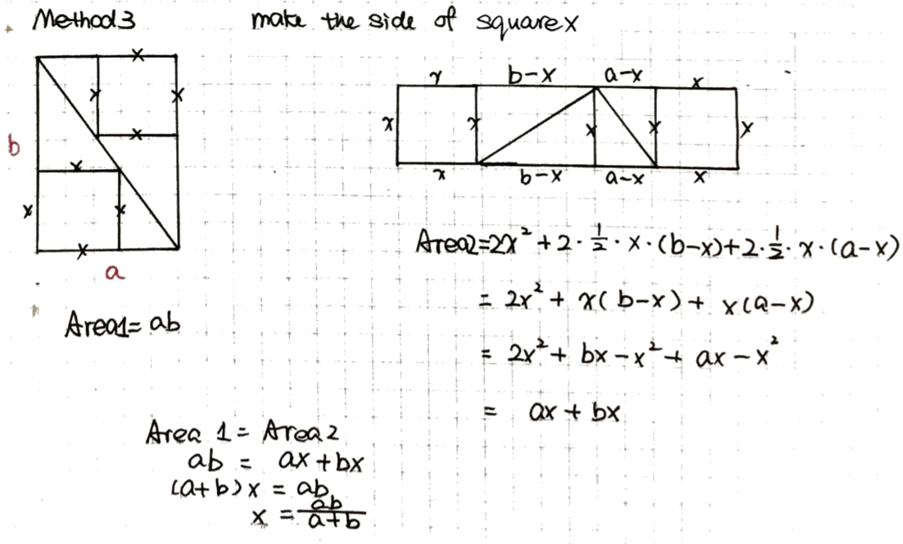 Method 3
make the side of square x
x
x
x
x
b
x
x
x
x
a
Area1 = ab
x
b-x
a-x
x
x
x
x
x
x
x
b-x
a-x
x
Area2 = 2x² + 2 · 1/2 · x · (b-x) + 2 · 1/2 · x · (a-x)
= 2x² + x(b-x) + x(a-x)
= 2x² + bx - x² + ax - x²
= ax + bx
Area 1 = Area 2
ab = ax + bx
(a+b)x = ab
x = ab/a+b